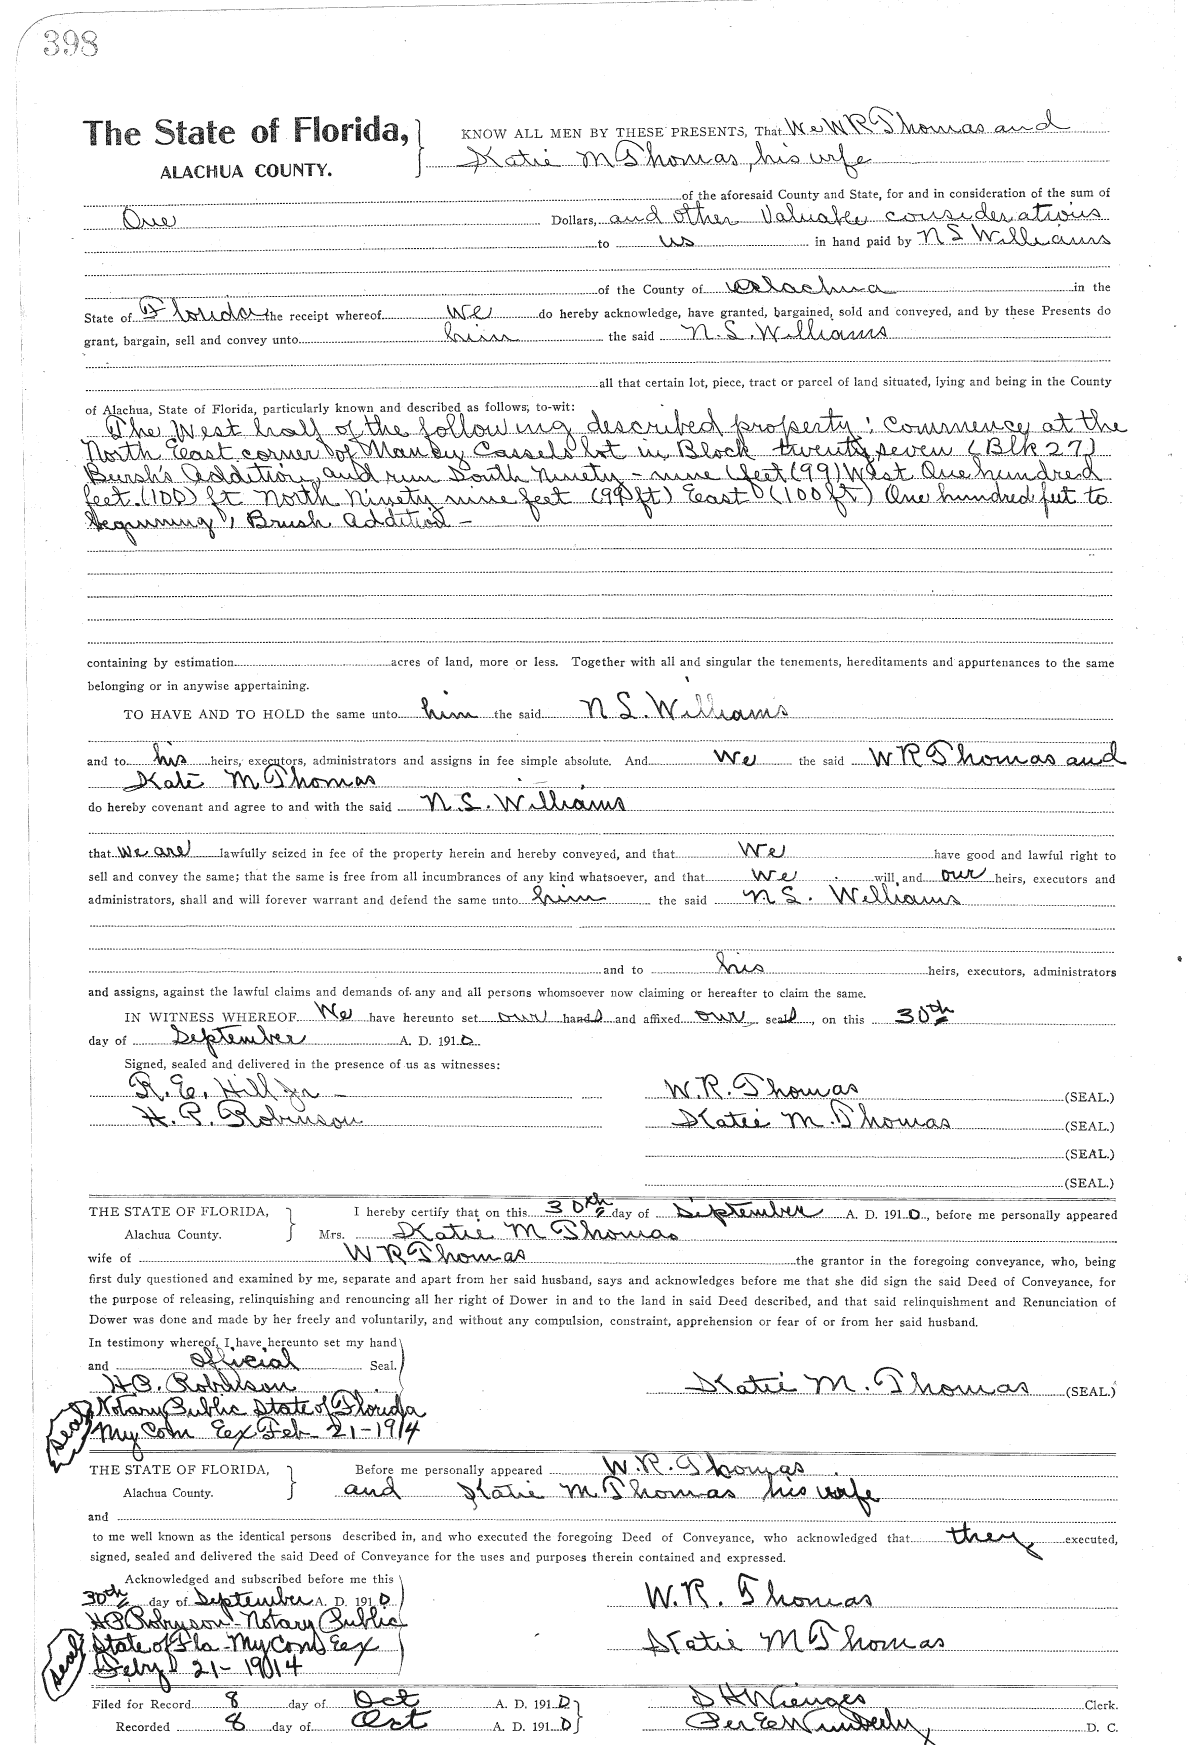 398
The State of Florida,
ALACHUA COUNTY.
KNOW ALL MEN BY THESE PRESENTS, That We W R Thomas and
Katie M Thomas, his wife
of the aforesaid County and State, for and in consideration of the sum of
One Dollars, and other Valuable considerations
to us in hand paid by N S Williams
of the County of Alachua in the
State of Florida the receipt whereof We do hereby acknowledge, have granted, bargained, sold and conveyed, and by these Presents do
grant, bargain, sell and convey unto him the said N. S. Williams
all that certain lot, piece, tract or parcel of land situated, lying and being in the County
of Alachua, State of Florida, particularly known and described as follows; to-wit:
The West half of the following described property: Commence at the
North East corner of Mandy Cassels lot in Block twenty seven (Blk 27)
Brush's Addition, and run South Ninety-nine feet (99) West One hundred
feet. (100) ft North Ninety nine feet (99 ft) East (100 ft) One hundred feet to
beginning, Brush Addition -
containing by estimation acres of land, more or less. Together with all and singular the tenements, hereditaments and appurtenances to the same
belonging or in anywise appertaining.
TO HAVE AND TO HOLD the same unto him the said N S. Williams
and to his heirs, executors, administrators and assigns in fee simple absolute. And We the said W R Thomas and
Katie M. Thomas
do hereby covenant and agree to and with the said N. S. Williams
that we are lawfully seized in fee of the property herein and hereby conveyed, and that We have good and lawful right to
sell and convey the same; that the same is free from all incumbrances of any kind whatsoever, and that we will, and our heirs, executors and
administrators, shall and will forever warrant and defend the same unto him the said N S. Williams
and to his heirs, executors, administrators
and assigns, against the lawful claims and demands of any and all persons whomsoever now claiming or hereafter to claim the same.
IN WITNESS WHEREOF We have hereunto set our hands and affixed our seals, on this 30th
day of September A. D. 1910.
Signed, sealed and delivered in the presence of us as witnesses:
R. E. Hill Jr - W. R. Thomas (SEAL.)
H. P. Robinson Katie M. Thomas (SEAL.)
(SEAL.)
(SEAL.)
THE STATE OF FLORIDA,
Alachua County.
I hereby certify that on this 30th day of September A. D. 1910, before me personally appeared
Mrs. Katie M Thomas
wife of W R Thomas the grantor in the foregoing conveyance, who, being
first duly questioned and examined by me, separate and apart from her said husband, says and acknowledges before me that she did sign the said Deed of Conveyance, for
the purpose of releasing, relinquishing and renouncing all her right of Dower in and to the land in said Deed described, and that said relinquishment and Renunciation of
Dower was done and made by her freely and voluntarily, and without any compulsion, constraint, apprehension or fear of or from her said husband.
In testimony whereof, I have hereunto set my hand
and official Seal.
H. P. Robinson Katie M. Thomas (SEAL.)
Seal Notary Public State of Florida
My Com Eex Feb- 21-1914
THE STATE OF FLORIDA,
Alachua County.
Before me personally appeared W. R. Thomas
and Katie M Thomas his wife
and
to me well known as the identical persons described in, and who executed the foregoing Deed of Conveyance, who acknowledged that they executed,
signed, sealed and delivered the said Deed of Conveyance for the uses and purposes therein contained and expressed.
Acknowledged and subscribed before me this
30th day of September A. D. 1910 W. R. Thomas
H P Robinson - Notary Public
Seal State of Fla - My Com Eex Katie M Thomas
Feby 21-1914
Filed for Record 8 day of Oct A. D. 1910 S H Wienges Clerk.
Recorded 8 day of Oct A. D. 1910 Per E Wimberly D. C.